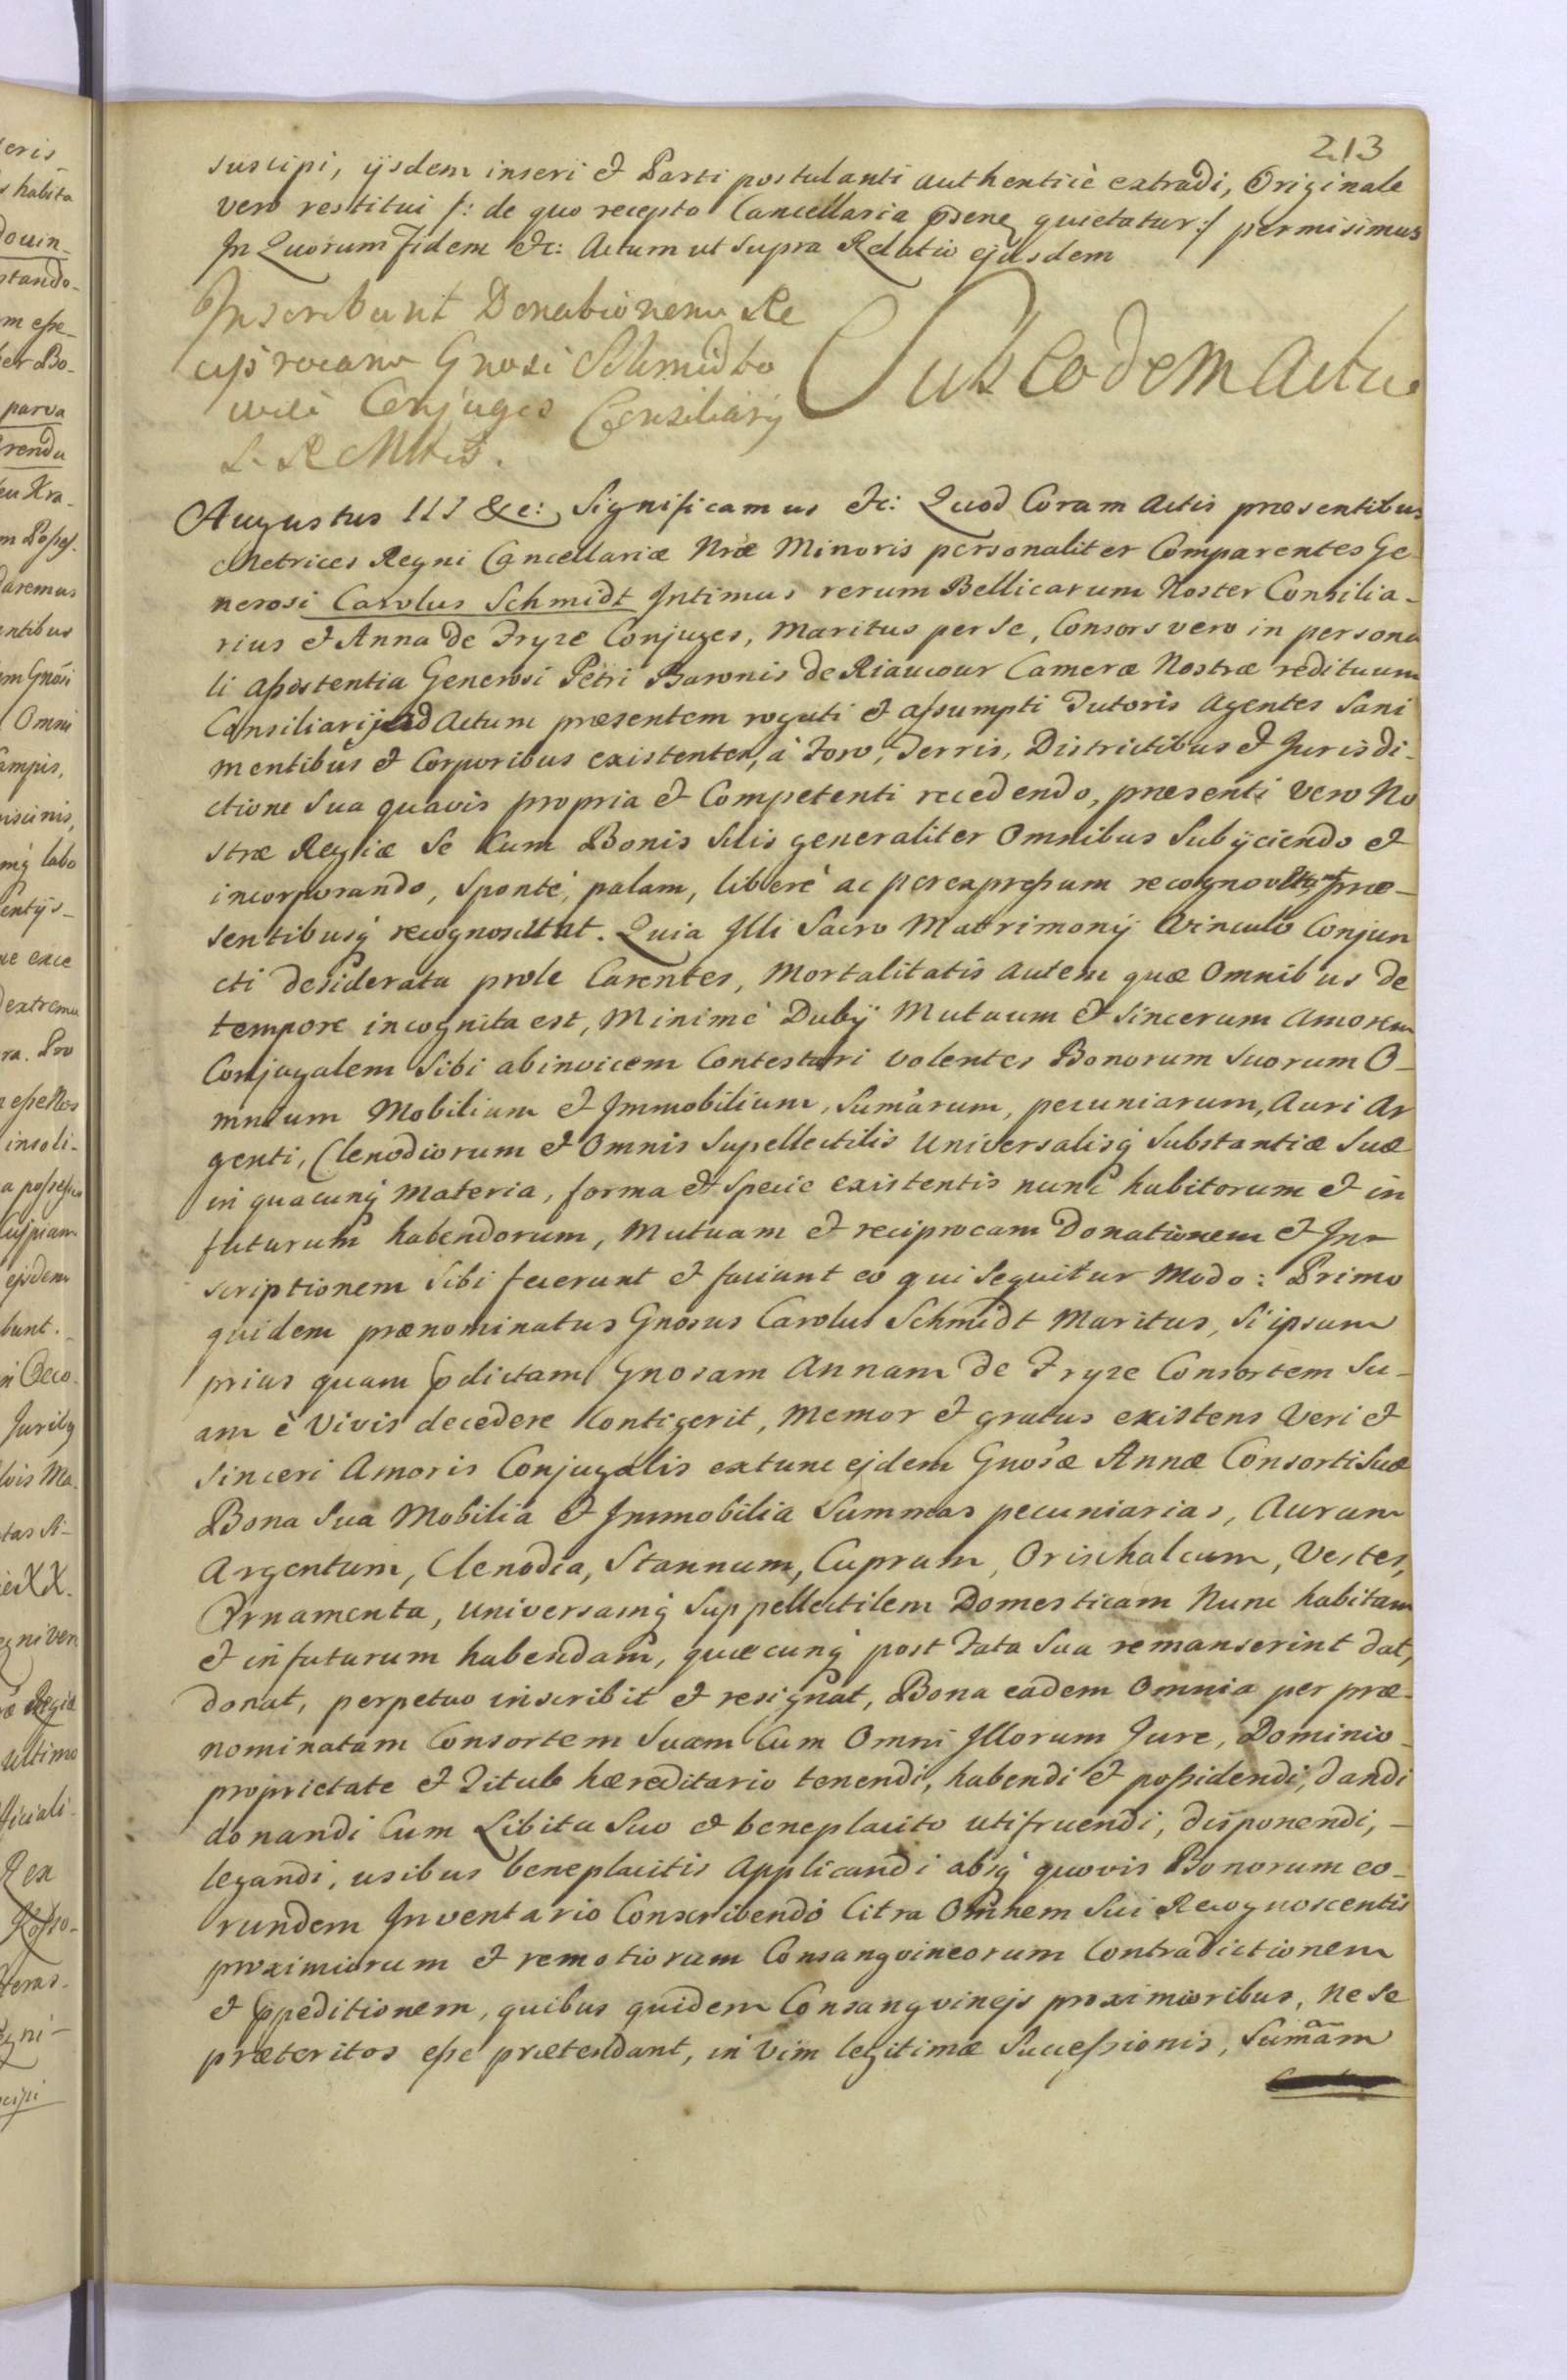 213
suscipi, ijsdem inseri et Parti postulanti authenticè extradi, Originale
vero restitui /: de quo recepto Cancellaria quietatur :/ permisimus
In Quorum fidem etc: Actum ut supra Relatio ejusdem
Inscribunt Donationem Re
ciprocam Gnosi Schmidto
wie Conjuges Consiliarij
S. R. Mttis.
Sub eodem actu
Augustus III &c: Significamus etc: Quod Coram Actis præsentibus
Metrices Regni Cancellariæ Nræ Minoris personaliter Comparentes Ge-
nerosi Carolus Schmidt Intimus rerum Bellicarum Noster Consilia-
rius et Anna de Fryze Conjuges, Maritus per se, Consors vero in persona
li assistentia Generosi Petri Baronis de Riaucour Cameræ Nostræ redituum
Consiliarij ad Actum præsentem rogati et assumpti Tutoris Agentes Sani
mentibus et Corporibus existentes, à Foro, Terris, Districtibus et Jurisdi-
ctione Sua quavis propria et Competenti recedendo, præsenti vero No
stræ Regiæ Se Cum Bonis Suis generaliter Omnibus Subijciendo et
incorporando, Spontè, palam, liberè ac per expressum recognoverunt præ-
sentibusq recognoscunt. Quia Illi Sacro Matrimonij Vinculo Conjun
cti desiderata prole Carentes, Mortalitatis autem quæ Omnibus de
tempore incognita est, Minimè Dubij Mutuum et Sincerum Amorem
Conjugalem Sibi abinvicem Contestari volentes Bonorum Suorum O-
mnium Mobilium et Immobilium, Sumarum, pecuniarum, Auri Ar
genti, Clenodiorum et Omnis Supellectilis Universalisq Substantiæ Suæ
in quacunq Materia, forma et Specie existentis nunc habitorum et in
futurum habendorum, Mutuam et reciprocam Donationem et In-
scriptionem Sibi fecerunt et faciunt eo qui Sequitur Modo: Primo
quidem prænominatus Gnosus Carolus Schmidt Maritus, Si ipsum
prius quam pdictam Gnosam Annam de Fryze Consortem Su-
am è Vivis decedere Contigerit, Memor et gratus existens Veri et
Sinceri Amoris Conjugalis extunc ejdem Gnosæ Annæ Consorti Suæ
Bona Sua Mobilia et Immobilia Summas pecuniarias, Aurum
Argentum, Clenodia, Stannum, Cuprum, Orichalcum, Vestes,
Ornamenta, Universamq Suppellectilem Domesticam Nunc habitam
et in futurum habendam, quæcunq post Fata Sua remanserint dat,
donat, perpetuo inscribit et resignat, Bona eadem Omnia per præ-
nominatam Consortem Suam Cum Omni Illorum Jure, Dominio-
proprietate et Titulo hæreditario tenendi, habendi et possidendi, dandi
donandi Cum Libitu Suo et beneplacito utifruendi, disponendi, -
legandi, usibus beneplacitis Applicandi absq quovis Bonorum eo-
rundem Inventario Conscribendo Citra Omnem Sui Recognoscentis
proximiorum et remotiorum Consangvineorum Contradictionem
et ppeditionem, quibus quidem Consangvinejs proximioribus, ne Se
præteritos esse prætendant, in Vim legitimæ Successionis, Sumam